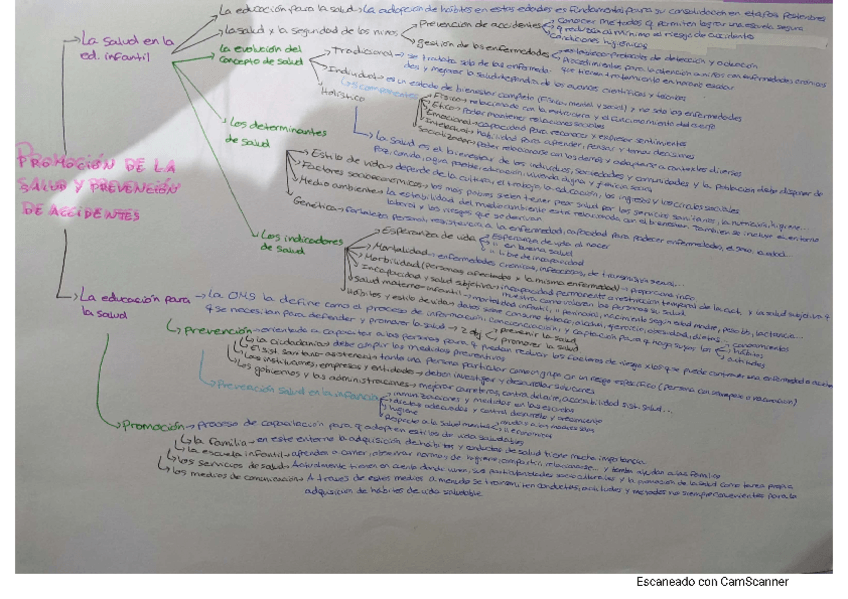 La educación para la salud → La adopción de hábitos en estas edades es fundamental para su consolidación en etapas posteriores
La salud en la ed. infantil
La salud y la seguridad de los niños
Prevención de accidentes
Conocer métodos q permiten lograr una escuela segura
q reduzca al mínimo el riesgo de accidente
Condiciones higiénicas
gestión de las enfermedades
establecer protocolos de detección y
Procedimientos para la atención a niños con enfermedades crónicas
que tienen tratamiento en horario escolar
La evolución del concepto de salud
Tradicional → se trataba solo de las enfermedades y mejorar la salud dependía de los avances científicos y técnicos
Individual → es un estado de bienestar completo (físico, mental y social) y no solo las enfermedades
5 componentes
Físico → relacionado con la estructura y el funcionamiento del cuerpo
Emocional → capacidad para reconocer y expresar sentimientos
Intelectual → habilidad para aprender, pensar y tomar decisiones
Social → poder relacionarse con los demás y adaptarse a contextos diversos
Holístico
La salud es el bienestar de los individuos, sociedades y comunidades y la población debe disponer de
Paz, comida, agua potable, educación, vivienda digna y justicia social
Los determinantes de salud
Estilo de vida → depende de la cultura, el trabajo, la educación, los ingresos y los círculos sociales
Factores socioeconómicos → los más pobres suelen tener peor salud por los servicios sanitarios, la nutrición, higiene...
Medio ambiente → la estabilidad del medio ambiente está relacionada con el bienestar. También se incluye el entorno
laboral y los riesgos que se derivan
Genética → fortaleza personal, resistencia a la enfermedad, capacidad para padecer enfermedades, el sexo, la edad...
PROMOCIÓN DE LA
SALUD Y PREVENCIÓN
DE ACCIDENTES
Los indicadores de salud
Esperanza de vida
Esperanza de vida al nacer
" en buena salud
" libre de incapacidad
Mortalidad → enfermedades crónicas, infecciosas, de transmisión sexual...
Morbilidad (personas afectadas x la misma enfermedad) → Proporciona info.
Incapacidad y salud subjetiva → incapacidad permanente o restricción temporal de la act. y la salud subjetiva
muestra como valoran las personas su salud
Salud materno-infantil → mortalidad infantil, " perinatal, nacimiento según edad madre, peso bb, lactancia...
Hábitos y estilo de vida → datos sobre consumo tabaco, alcohol, ejercicio, obesidad, dietas...
La educación para la salud
→ La OMS la define como el proceso de información, concienciación y captación para q haga suyos los
conocimientos
hábitos
actitudes
q se necesitan para defender y promover la salud → 2 obj
prevenir la salud
promover la salud
Prevención → orientada a capacitar a las personas para q puedan reducir los factores de riesgo x los que puede contraer una enfermedad o accidente
La ciudadanía → debe cumplir las medidas preventivas
El sist. sanitario → atenciona tanto una persona particular como un grupo en un riesgo específico
Las instituciones, empresas y entidades → deben investigar y desarrollar soluciones
Los gobiernos y las administraciones → mejorar carreteras, control del aire, accesibilidad sist. salud...
Prevención salud en la infancia
inmunizaciones y medidas en las escuelas
dietas adecuadas y control desarrollo y crecimiento
higiene
Respecto a la salud mental
ayuda a las madres solas
" económica
Promoción → proceso de capacitación para q adopten estilos de vida saludables
La familia → en este entorno la adquisición de hábitos y conductas de salud tiene mucha importancia
La escuela infantil → aprenden a comer, observar normas de higiene, compartir, relacionarse... y también ayudan a las familias
Los servicios de salud → Actualmente tienen en cuenta donde viven, sus particularidades socioculturales y la promoción de la salud como tarea propia
Los medios de comunicación → A través de estos medios a menudo se transmiten conductas, actitudes y mensajes no siempre convenientes para la
adquisición de hábitos de vida saludable
Escaneado con CamScanner